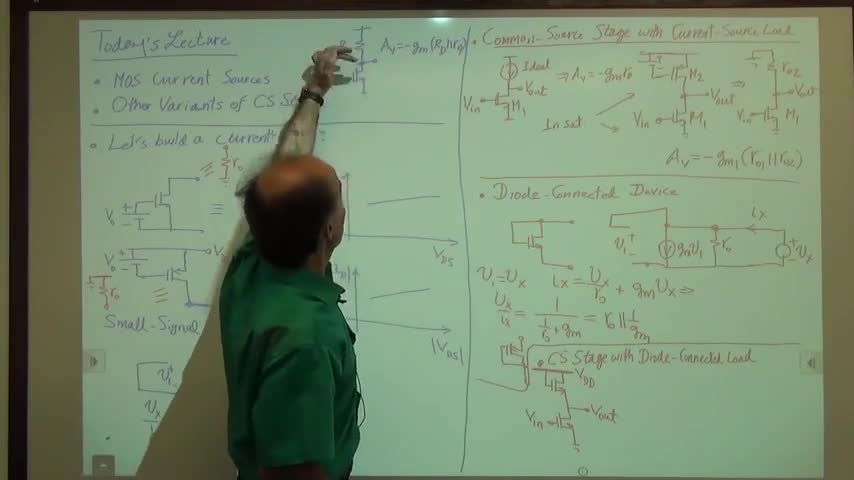 Today's Lecture
• MOS Current Sources
• Other Variants of CS
Av = -gm (RD || ro)
• Let's build a current :
Vo
≡ ro
≡
VDS
Vo
ro ≡
|VDS|
Small-Signal
V1
Vx
• Common-Source Stage with Current-Source Load
Ideal
Vin Vout M1
⇒ Av = -gm ro
In sat
M2
Vout
Vin M1
⇒
ro2
Vout
Vin M1
Av = -gm1 (ro1 || ro2)
• Diode-Connected Device
V1 gm V1 ro ix Vx
V1 = Vx ix = Vx/ro + gm Vx ⇒
Vx/ix = 1/(1/ro + gm) = ro || 1/gm
• CS Stage with Diode-Connected Load
VDD
Vout
Vin